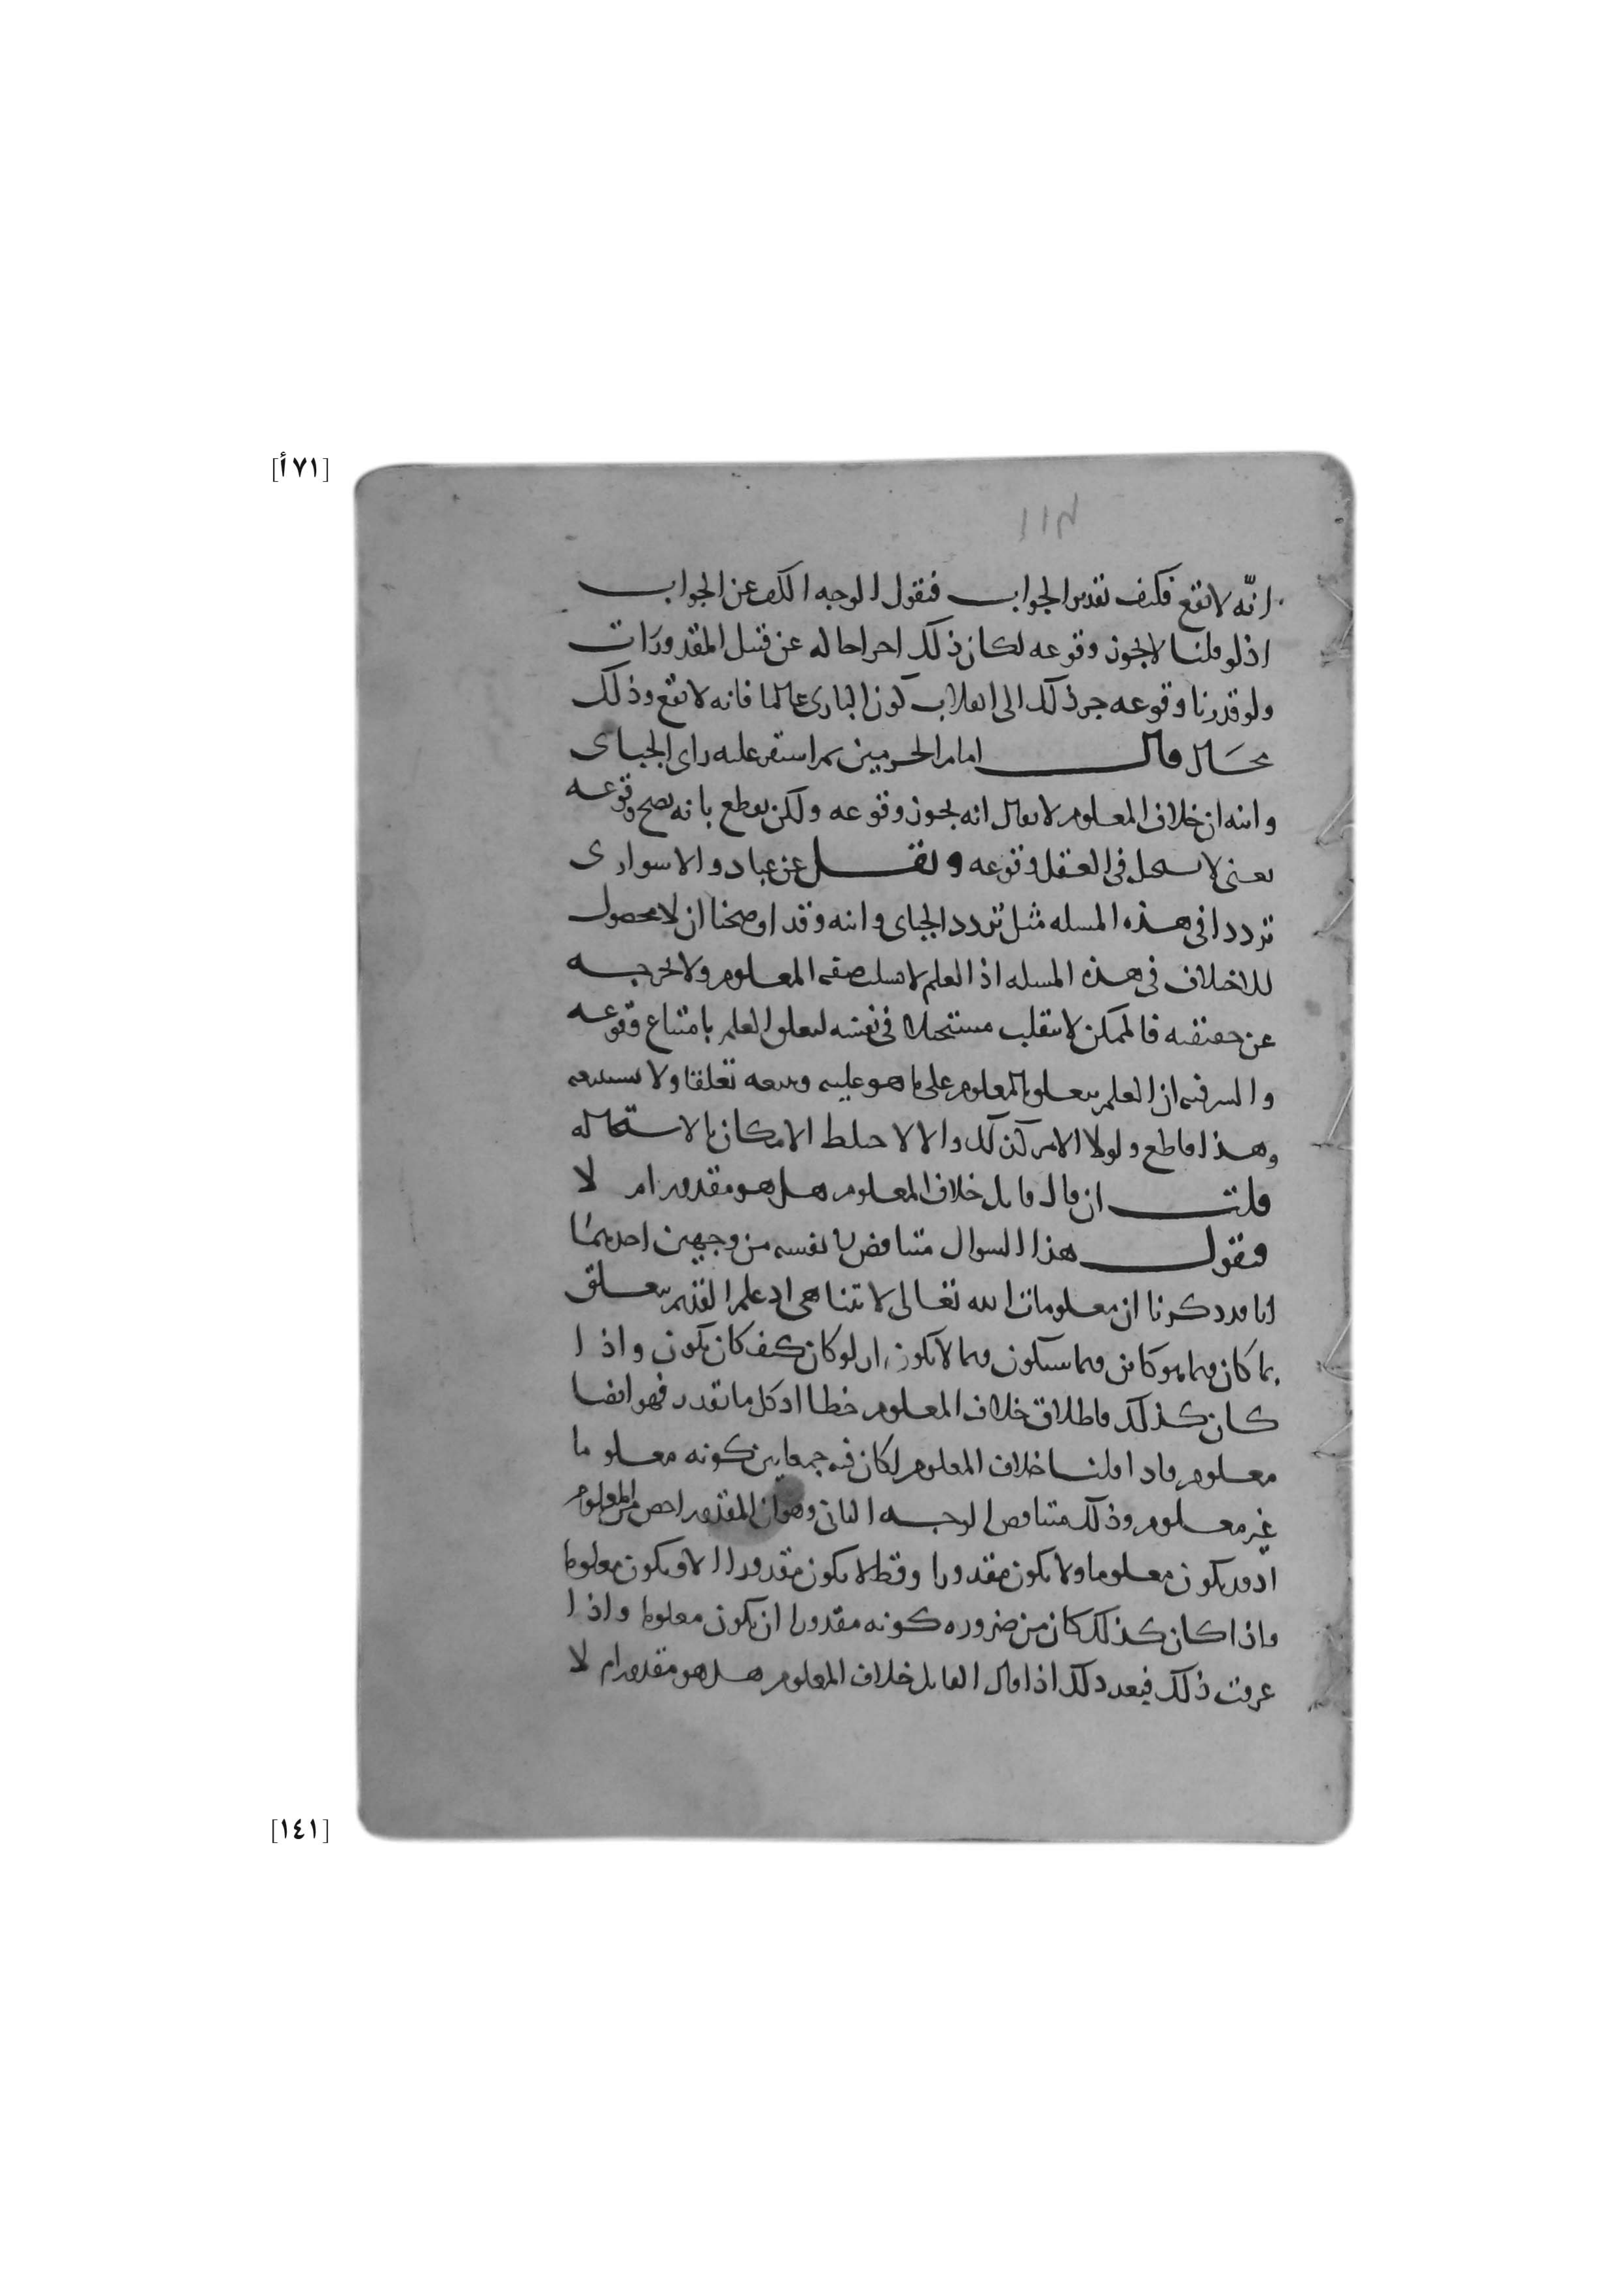 [٧١أ]
انه لا يقع فكيف تقدير الجواب فنقول الوجه الكف عن الجواب
اذ لو قلنا لا يجوز وقوعه لكان ذلك اخراجا له عن قبيل المقدورات
ولو قدرنا وقوعه جر ذلك الى انقلاب كون البارى عالما فانه لا يقع وذلك
محال قال امام الحرمين ثم استقر عليه راى الجباى
وابنه ان خلاف المعلوم لا يقال انه يجوز وقوعه ولكن يقطع بانه يصح وقوعه
يعنى لا يستحيل فى العقل وقوعه ونقل عن عباد والاسوارى
تردد فى هذه المسله مثل تردد الجباى وابنه وقد اوضحنا ان لا محصول
للاختلاف فى هذه المسله اذ العلم لا يسلب صفه المعلوم ولا يخرجه
عن حقيقته فالممكن لا ينقلب مستحيلا فى نفسه لتعلق العلم بامتناع وقوعه
والسر فيه ان العلم يتعلق بالمعلوم على ما هو عليه ويتبعه تعلقا ولا يستتبعه
وهذا قاطع ولولا الامر كذلك والا لاختلط الامكان بالاستحاله
قلت ان قال قايل خلاف المعلوم هل هو مقدور ام لا
فنقول هذا السوال متناقض فى نفسه من وجهين احدهما
انا قد ذكرنا ان معلومات الله تعالى لا تتناهى اذ علم القديم يتعلق
بما كان وبما هو كاين وبما سيكون وبما لا يكون ان لو كان كيف كان يكون واذا
كان كذلك فاطلاق خلاف المعلوم خطا اذ كل ما تقدر فهو ايضا
معلوم فاذا قلنا خلاف المعلوم لكان فيه جمعا بين كونه معلوما
غير معلوم وذلك متناقض الوجه الثانى وهو ان المقدور اخص من المعلوم
اذ قد يكون معلوما ولا يكون مقدورا وقط لا يكون مقدورا الا ويكون معلوما
واذا كان كذلك كان من ضروره كونه مقدورا ان يكون معلوما واذا
عرفت ذلك فبعد ذلك اذا قال القايل خلاف المعلوم هل هو مقدور ام لا
[١٤١]